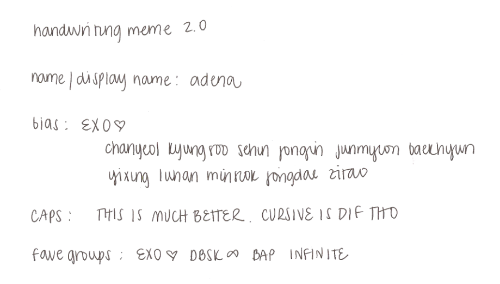 handwriting meme 2.0
name/display name: adena
bias: EXO♡
chanyeol kyungsoo sehun jongin junmyeon baekhyun
yixing luhan minseok jongdae zitao
CAPS: THIS IS MUCH BETTER. CURSIVE IS DIF THO
fave groups: EXO♡ DBSK∞ BAP INFINITE